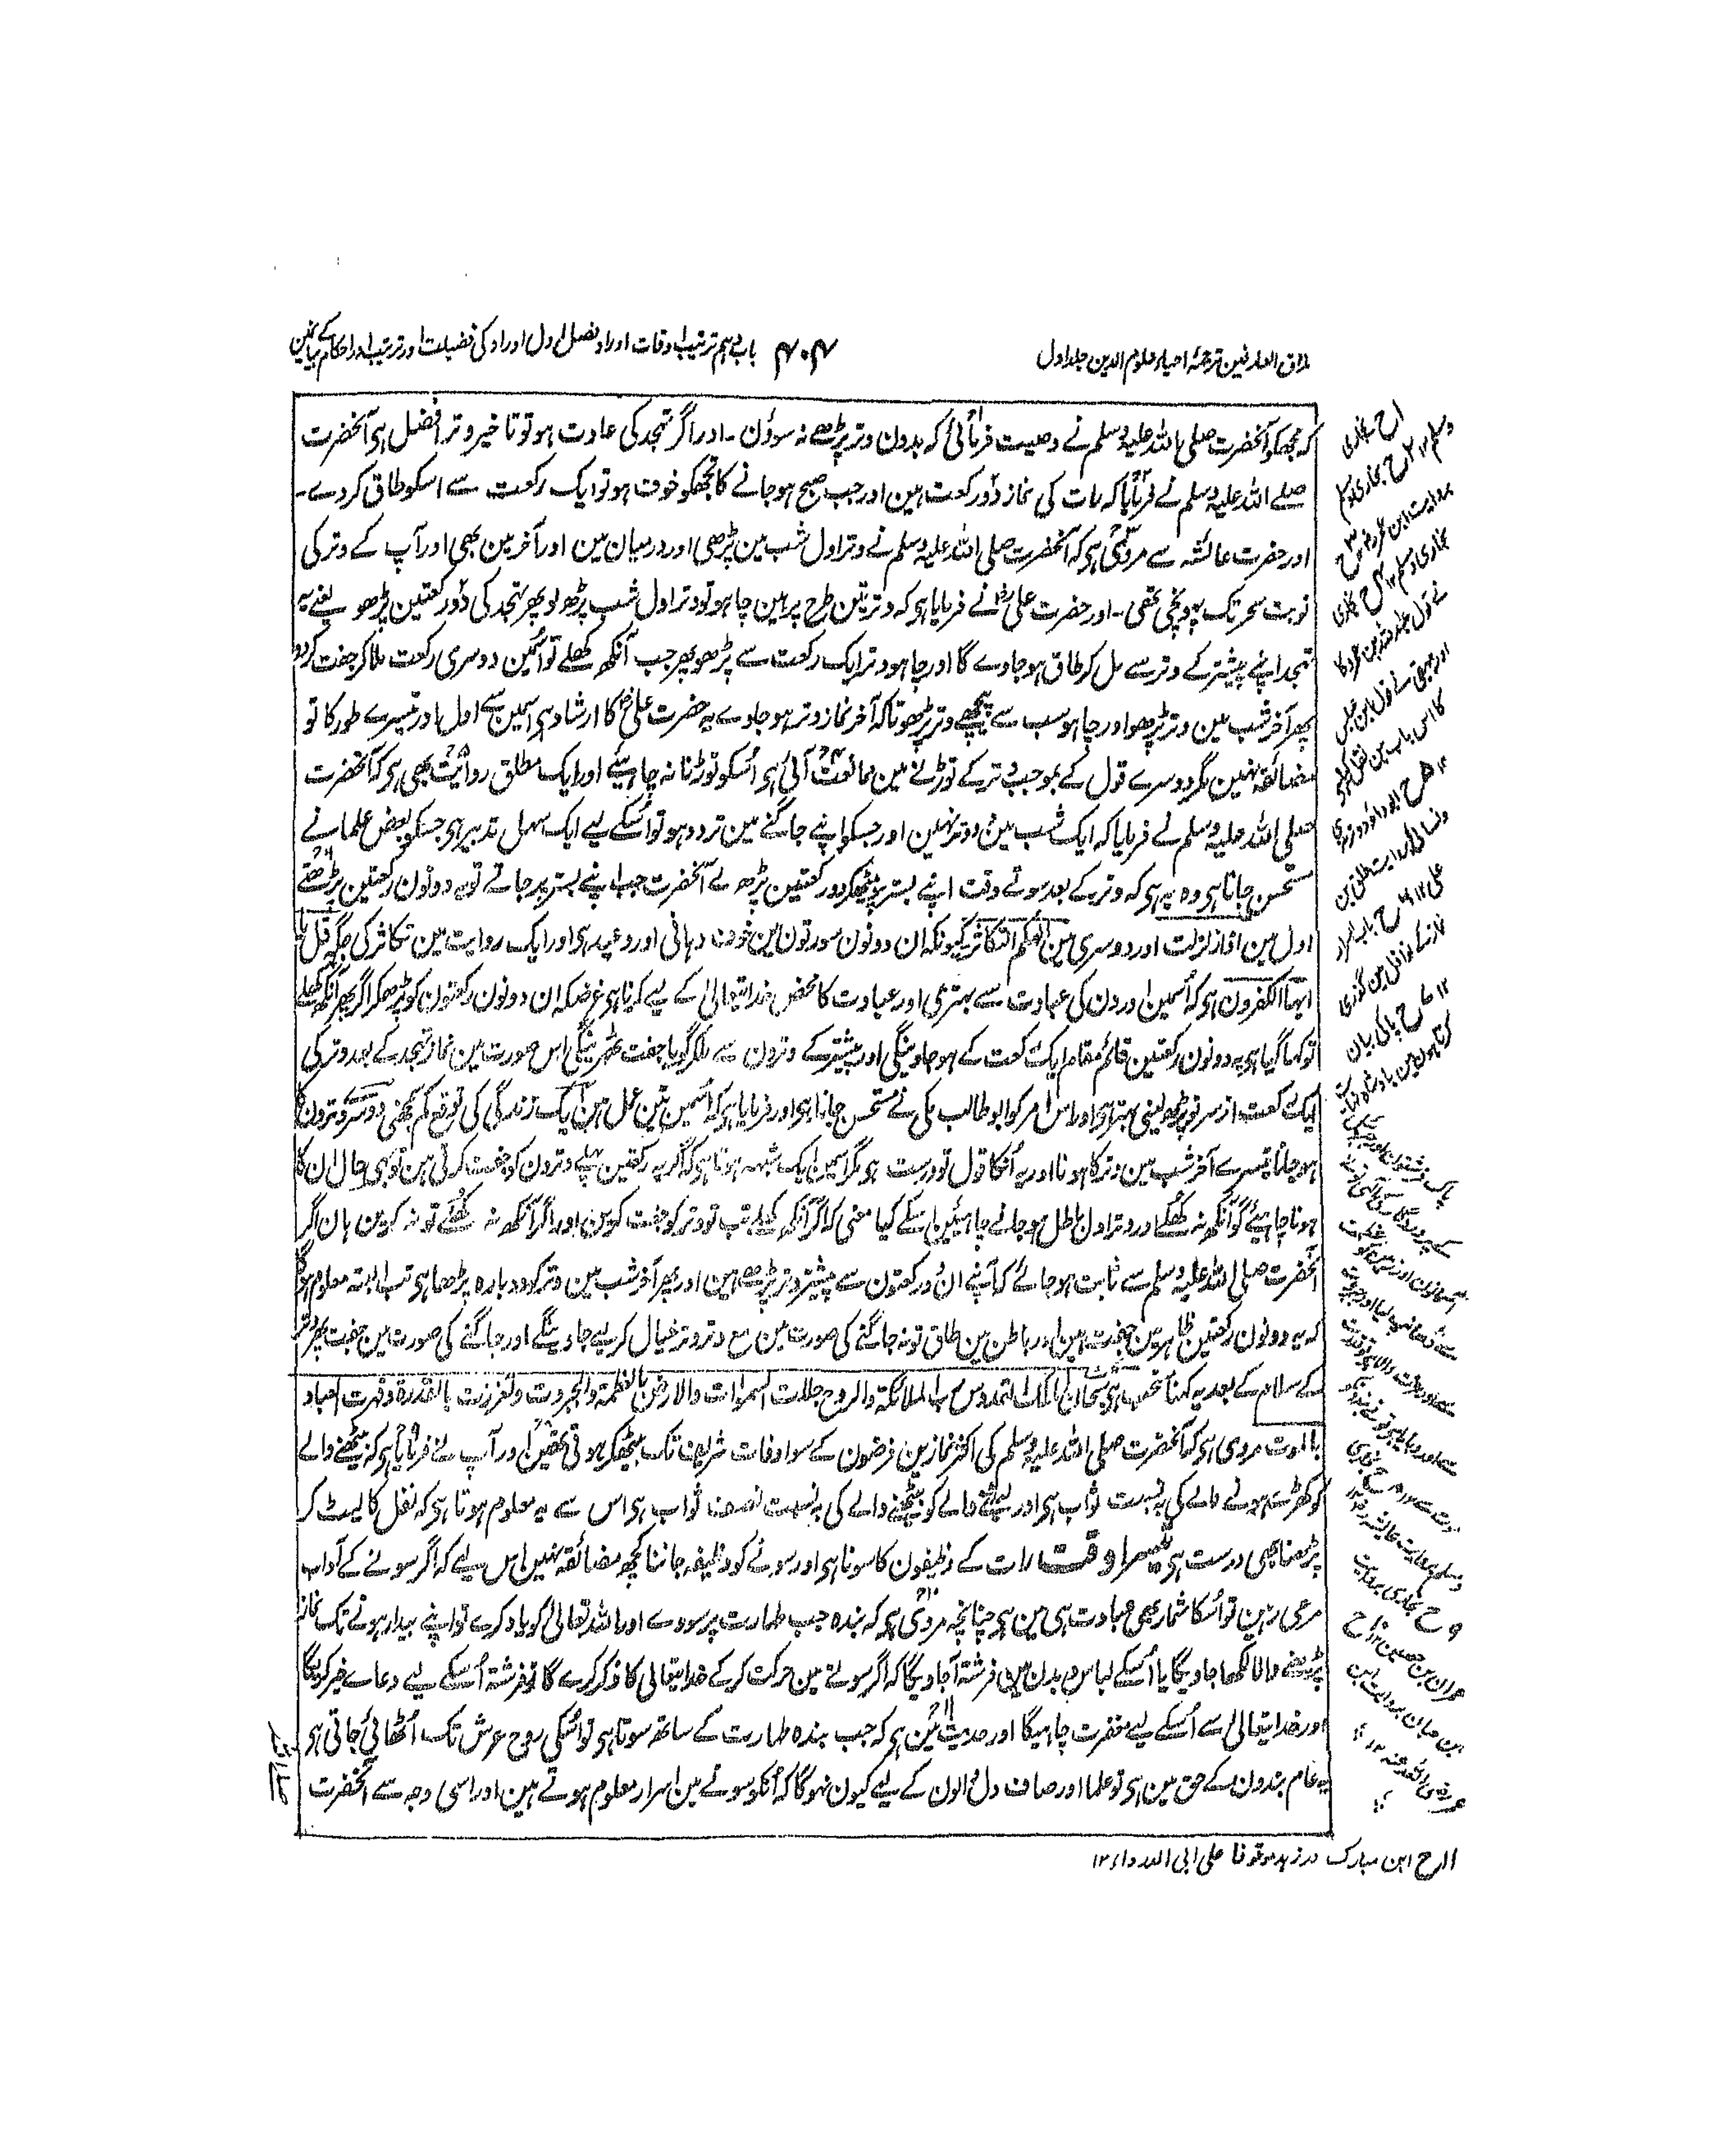 مذاق العارفین ترجمۂ احیاء علوم الدین جلد اول
۴۰۴
باب دہم ترتیب اوقات اوراد فصل اول اوراد کی فضیلت اور ترتیب اور احکام کے بیان مین
کہ مجھکو آنحضرت صلی اللہ علیہ وسلم نے وصیت فرمائی کہ بدون وتر پڑھے نہ سوؤن ۔ اور اگر تہجد کی عادت ہو تو تاخیر وتر افضل ہی آنحضرت
صلے اللہ علیہ وسلم نے فرمایا کہ رات کی نماز دو رکعت ہین اور جب صبح ہو جانے کا تجھکو خوف ہو تو ایک رکعت سے اسکو طاق کر دے ۔
اور حضرت عائشہ سے مروی ہی کہ آنحضرت صلی اللہ علیہ وسلم نے وتر اول شب مین پڑھی اور درمیان مین اور آخر مین بھی اور آپ کے وتر کی
نوبت سحر تک پہونچی تھی ۔ اور حضرت علی رضہ نے فرمایا ہی کہ وتر تین طرح پر ہین چاہو تو وتر اول شب پڑھ لو پھر تہجد کی دو رکعتین پڑھو یعنے یہ
تہجد اپنے پیشتر کے وتر سے مل کر طاق ہو جاوے گا اور چاہو وتر ایک رکعت سے پڑھو پھر جب آنکھ کھلے تو اسمین دوسری رکعت ملا کر جفت کر دو
پھر آخر شب مین وتر پڑھو اور چاہو سب سے پیچھے وتر پڑھو تا کہ آخر نماز وتر ہو جاوے یہ حضرت علی رضہ کا ارشاد ہی اسمین سے اول اور تیسرے طور کا تو
مضائقہ نہین مگر دوسرے قول کے بموجب وتر کے توڑنے مین ممانعت آئی ہی اسکو توڑنا نہ چاہیئے اور ایک مطلق روایت بھی ہی کہ آنحضرت
صلی اللہ علیہ وسلم نے فرمایا کہ ایک شب مین دو وتر نہین اور جسکو اپنے جاگنے مین تردد ہو تو اسکے لیے ایک سہل تدبیر ہی جسکو بعض علما نے
مستحسن جانا ہی وہ یہ ہی کہ وتر کے بعد سوتے وقت اپنے بستر پر بیٹھکر دو رکعتین پڑھ لے آنحضرت جب اپنے بستر پر جاتے تو یہ دونون رکعتین پڑھتے
اول مین اذا زلزلت اور دوسری مین الہکم التکاثر کیونکہ ان دونون سورتون مین خوف دہانی اور وعید ہی اور ایک روایت مین تکاثر کی جگہ قل یا
ایہا الکفرون ہی کہ اسمین اورون کی عبادت سے بہتری اور عبادت کا محض خدا یتعالیٰ کے لیے کرنا ہی غرضکہ ان دونون رکعتون کو پڑھکر اگر پھر آنکھ کھلے
تو کہا گیا ہی یہ دونون رکعتین قائم مقام ایک رکعت کے ہو جاوینگی اور پیشتر کے وترون سے ملکر گویا جفت ٹھہرینگی اس صورت مین نماز تہجد کے بعد وتر کی
ایک رکعت از سر نو پڑھ لینی بہتر ہی اور اس امر کو ابو طالب مکی نے مستحسن جانا ہی اور فرمایا ہی کہ اسمین تین عمل ہین ایک زندگی کی توقع کم سمجھنی دوسرے وترون کا
ہو جانا تیسرے آخر شب مین وتر کا ہونا اور یہ انکا قول تو درست ہی مگر اسمین ایک شبہہ ہوتا ہی کہ اگر یہ رکعتین پہلے وترون کو جفت کرتی ہین تو یہی حال ان کا
ہونا چاہیئے گو آنکھ نہ کھلے اور وتر اول باطل ہو جانے چاہیئین اسکے کیا معنی کہ اگر آنکھ کھلے تب تو وتر کو جفت کرین اور اگر آنکھ نہ کھلے تو نہ کرین ہان اگر
آنحضرت صلی اللہ علیہ وسلم سے ثابت ہو جائے کہ آپنے ان دو رکعتون سے پیشتر وتر پڑھے ہین اور پھر آخر شب مین وتر کو دوبارہ پڑھا ہی تب البتہ معلوم ہو گا
کہ یہ دونون رکعتین ظاہر مین جفت ہین اور باطن مین طاق تو نہ جاگنے کی صورت مین مع وتر وتر خیال کر لیے جاوینگے اور جاگنے کی صورت مین جفت پھر وتر
کے سلام کے بعد یہ کہنا مستحب ہی سبحان الملک القدوس رب الملائکۃ والروح جللت السموات والارض بالعظمۃ والجبروت وتعززت بالقدرۃ وقہرت العباد
بالموت مروی ہی کہ آنحضرت صلی اللہ علیہ وسلم کی اکثر نمازین فرضون کے سوا وفات شریف تک بیٹھکر ہوتی تھین اور آپ نے فرمایا ہی کہ بیٹھنے والے
کو کھڑے ہونے والے کی بہ نسبت ثواب ہی اور لیٹنے والے کو بیٹھنے والے کی بہ نسبت نصف ثواب ہی اس سے یہ معلوم ہوتا ہی کہ نفل کا لیٹ کر
پڑھنا بھی درست ہی تیسرا وقت رات کے وظیفون کا سونا ہی اور سونے کو وظیفہ جاننا کچھ مضائقہ نہین اس لیے کہ اگر سونے کے آداب
مرعی رہین تو اسکا شمار بھی عبادت ہی مین ہی چنانچہ مروی ہی کہ بندہ جب طہارت پر سووے اور اللہ تعالیٰ کو یاد کرے تو اپنے بیدار ہونے تک نماز
پڑھنے والا لکھا جاویگا یا اسکے لباس و بدن مین فرشتہ آجاویگا کہ اگر سوتے مین حرکت کر کے خدا یتعالی کا ذکر کرے گا تو فرشتہ اسکے لیے دعاے خیر کریگا
اور خدا یتعالیٰ سے اسکے لیے مغفرت چاہیگا اور حدیث مین ہی کہ جب بندہ طہارت کے ساتھ سوتا ہی تو اسکی روح عرش تک اٹھائی جاتی ہی
یہ عام بندون کے حق مین ہی تو علما اور صاف دل والون کے لیے کیون نہوگا کہ انکو سونے مین اسرار معلوم ہوتے ہین اور اسی وجہ سے آنحضرت
ا ح بخاری
وسلم ۱۲ ۲ ح بخاری ومسلم
بروایت ابن عمر رض ۳ ح
بخاری ومسلم ۱۲ ۴ ح بخاری
نے قول عبداللہ بن عمرو کا
اور بیہقی نے قول ابن عباس
کا اس باب مین نقل کیا ہی
۱۲ ۵ ح ابو داؤد و ترمذی
ونسائی بروایت طلق بن
علی ۱۲ ۶ ح باب اسرار
نماز کے نوافل مین گذری
۱۲ ۷ ح پاکی بیان
کرتا ہون مین بادشاہ
پاک فرشتون اور
کے پروردگار کی
آسمانون اور زمین کو
وسلم بروایت عائشہ رض
۹ ح بخاری بروایت
عمران بن حصین ۱۲ ۱۰ ح
ابن حبان بروایت ابن
عمر رضی اللہ عنہ ۱۲
۱۱ ح ابن مبارک در زہد موقوفا علی ابی الدرداء ۱۲